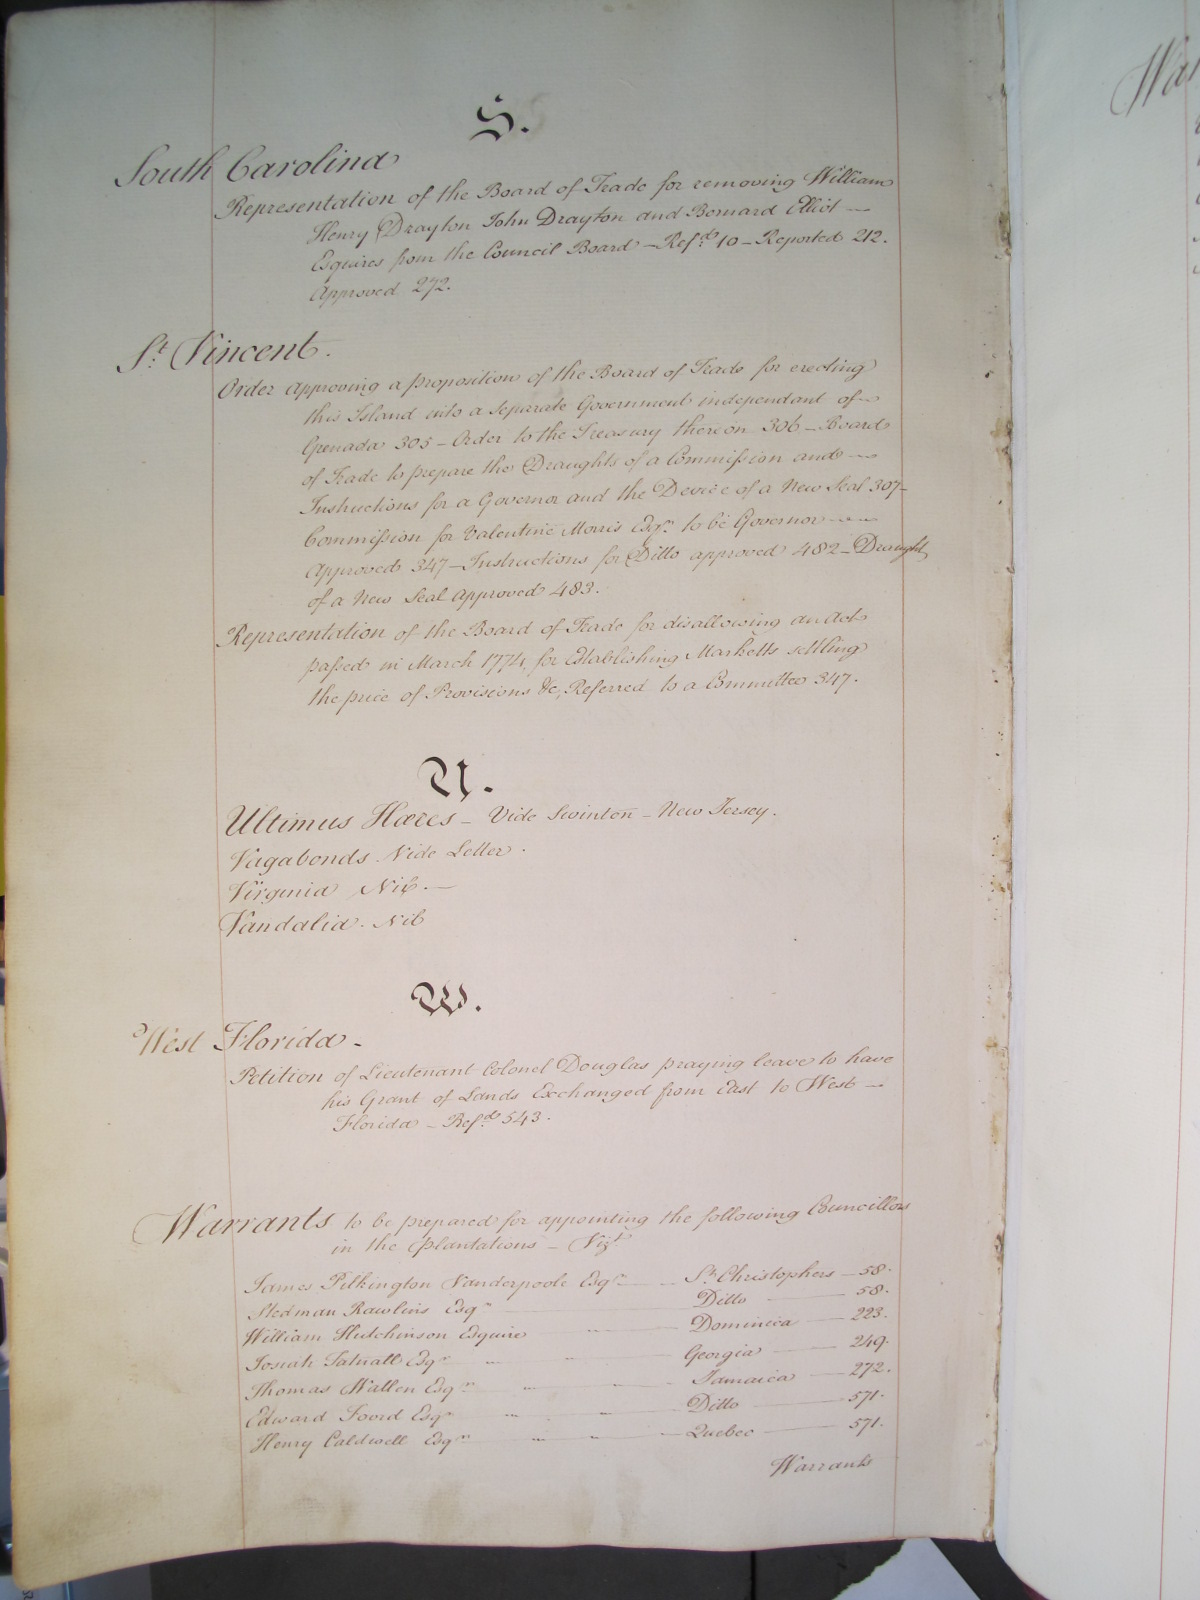 S.
South Carolina
Representation of the Board of Trade for removing William
Henry Drayton John Drayton and Bernard Elliot —
Esquires from the Council Board — Refd. 10 — Reported 212.
Approved 272.
St. Vincent.
Order approving a proposition of the Board of Trade for erecting
this Island into a Separate Government independant of
Grenada 305 — Order to the Treasury thereon 306 — Board
of Trade to prepare the Draughts of a Commission and
Instructions for a Governor and the Device of a New Seal 307 —
Commission for Valentine Morris Esqr. to be Governor
Approved 347 — Instructions for Ditto approved 482 — Draught
of a New Seal Approved 483.
Representation of the Board of Trade for disallowing an Act
passed in March 1774, for Establishing Marketts settling
the price of Provisions &c, Referred to a Committee 347.
U.
Ultimus Hæres — Vide Swinton — New Jersey.
Vagabonds Vide Letter.
Virginia Nil. —
Vandalia. Nil
W.
West Florida —
Petition of Lieutenant Colonel Douglas praying leave to have
his Grant of Lands Exchanged from East to West —
Florida — Refd. 543.
Warrants to be prepared for appointing the following Councillors
in the Plantations — Vizt
James Pilkington Vanderpoole Esqr. — St. Christophers — 58.
Stedman Rawlins Esqr — Ditto — 58.
William Hutchinson Esquire — Dominica — 223.
Josiah Tatnall Esqr — Georgia — 249.
Thomas Wallen Esqr — Jamaica — 272.
Edward Foord Esqr — Ditto — 571.
Henry Caldwell Esqr — Quebec — 571.
Warrants